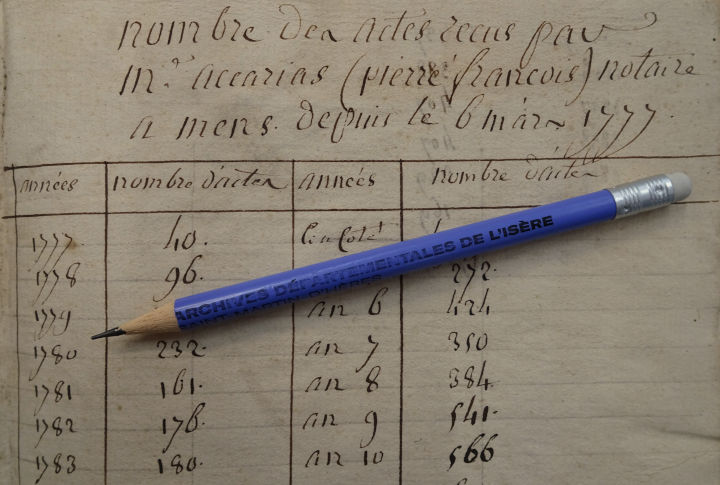 nombre des actes recus par
mr accarias (pierre francois) notaire
a mens. depuis le 6 mars 1777.
années nombre d'actes années nombre d'actes
1777 40.
1778 96. 272.
ARCHIVES DÉPARTEMENTALES DE L'ISÈRE
1779 an 6 424
1780 232. an 7 350
1781 161. an 8 384
1782 176. an 9 541.
1783 180. an 10 566